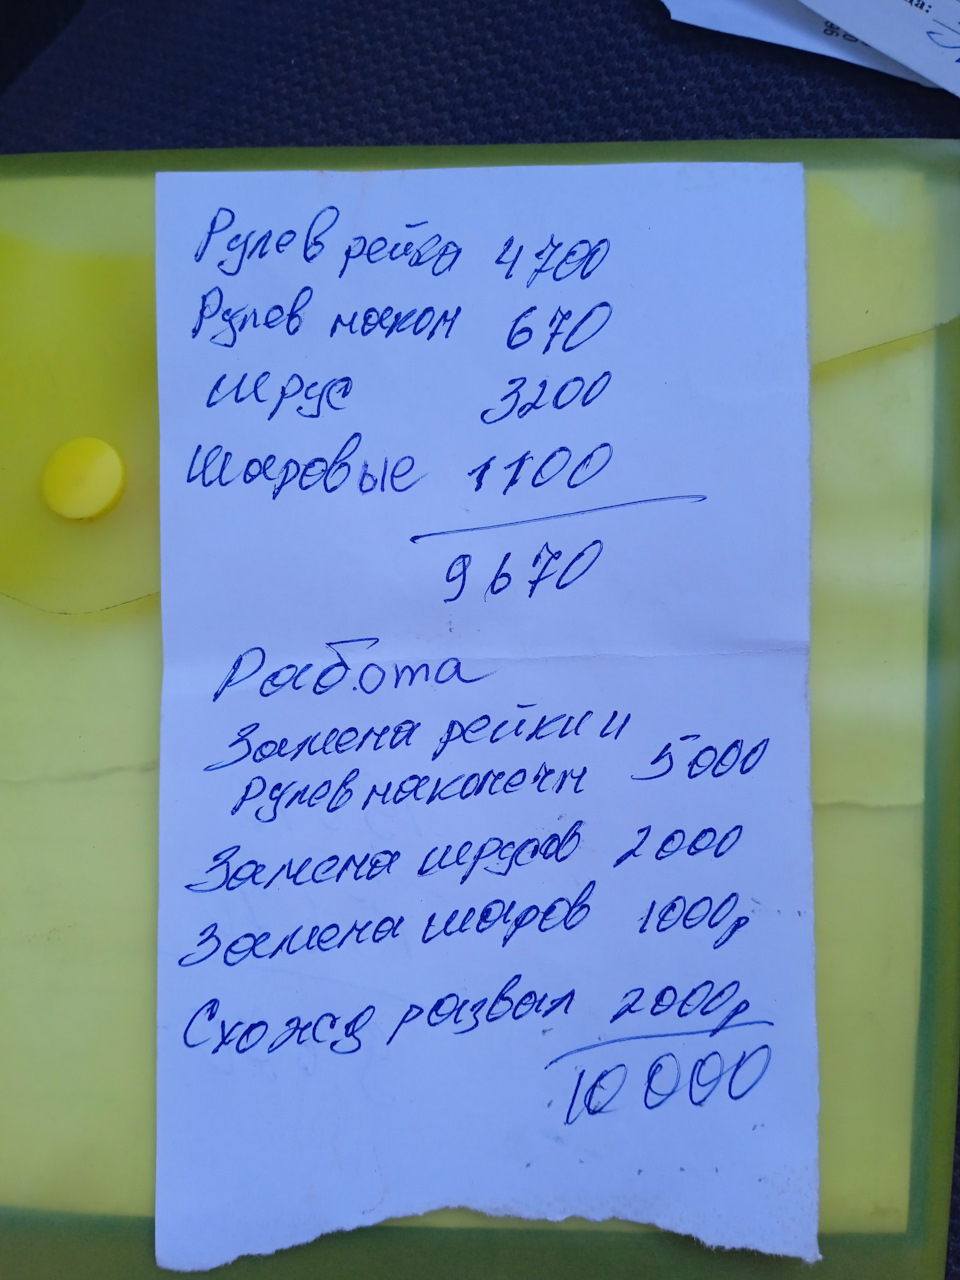 Рулев рейка 4700
Рулев након 670
шрус 3200
шаровые 1100
9670
Работа
Замена рейки и
Рулев наконечн 5000
Замена шрусов 2000
Замена шаров 1000р
Схожд развал 2000р
10 000